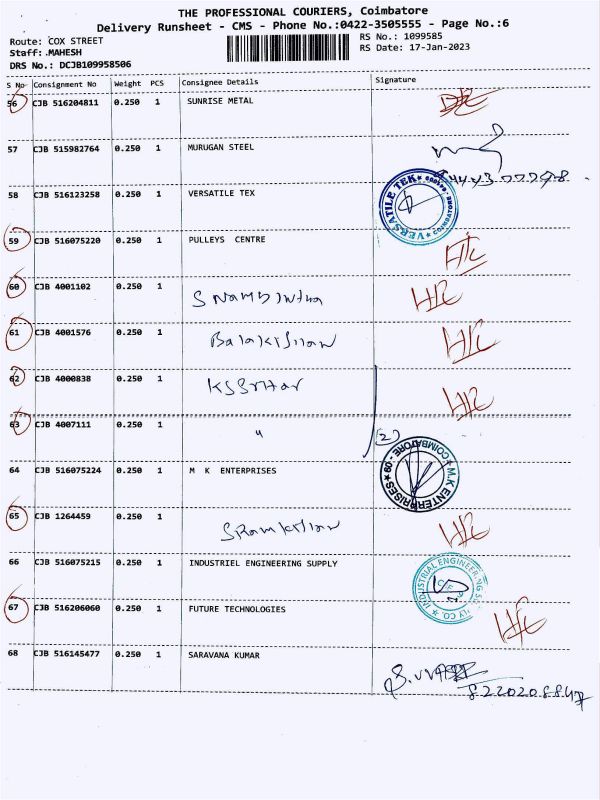 THE PROFESSIONAL COURIERS, Coimbatore
Delivery Runsheet - CMS - Phone No.:0422-3505555 - Page No.:6
Route: COX STREET RS No.: 1099585
Staff: MAHESH RS Date: 17-Jan-2023
DRS No.: DCJB109958506
S No Consignment No Weight PCS Consignee Details Signature
56 CJB 516204811 0.250 1 SUNRISE METAL
57 CJB 515982764 0.250 1 MURUGAN STEEL
58 CJB 516123258 0.250 1 VERSATILE TEX VERSATILE TEX COIMBATORE
59 CJB 516075220 0.250 1 PULLEYS CENTRE
60 CJB 4001102 0.250 1
61 CJB 4001576 0.250 1
62 CJB 4000838 0.250 1
63 CJB 4007111 0.250 1 " (2)
64 CJB 516075224 0.250 1 M K ENTERPRISES M.K ENTERPRISES COIMBATORE - 09
65 CJB 1264459 0.250 1
66 CJB 516075215 0.250 1 INDUSTRIEL ENGINEERING SUPPLY INDUSTRIAL ENGINEERING
67 CJB 516206060 0.250 1 FUTURE TECHNOLOGIES
68 CJB 516145477 0.250 1 SARAVANA KUMAR
8220208847